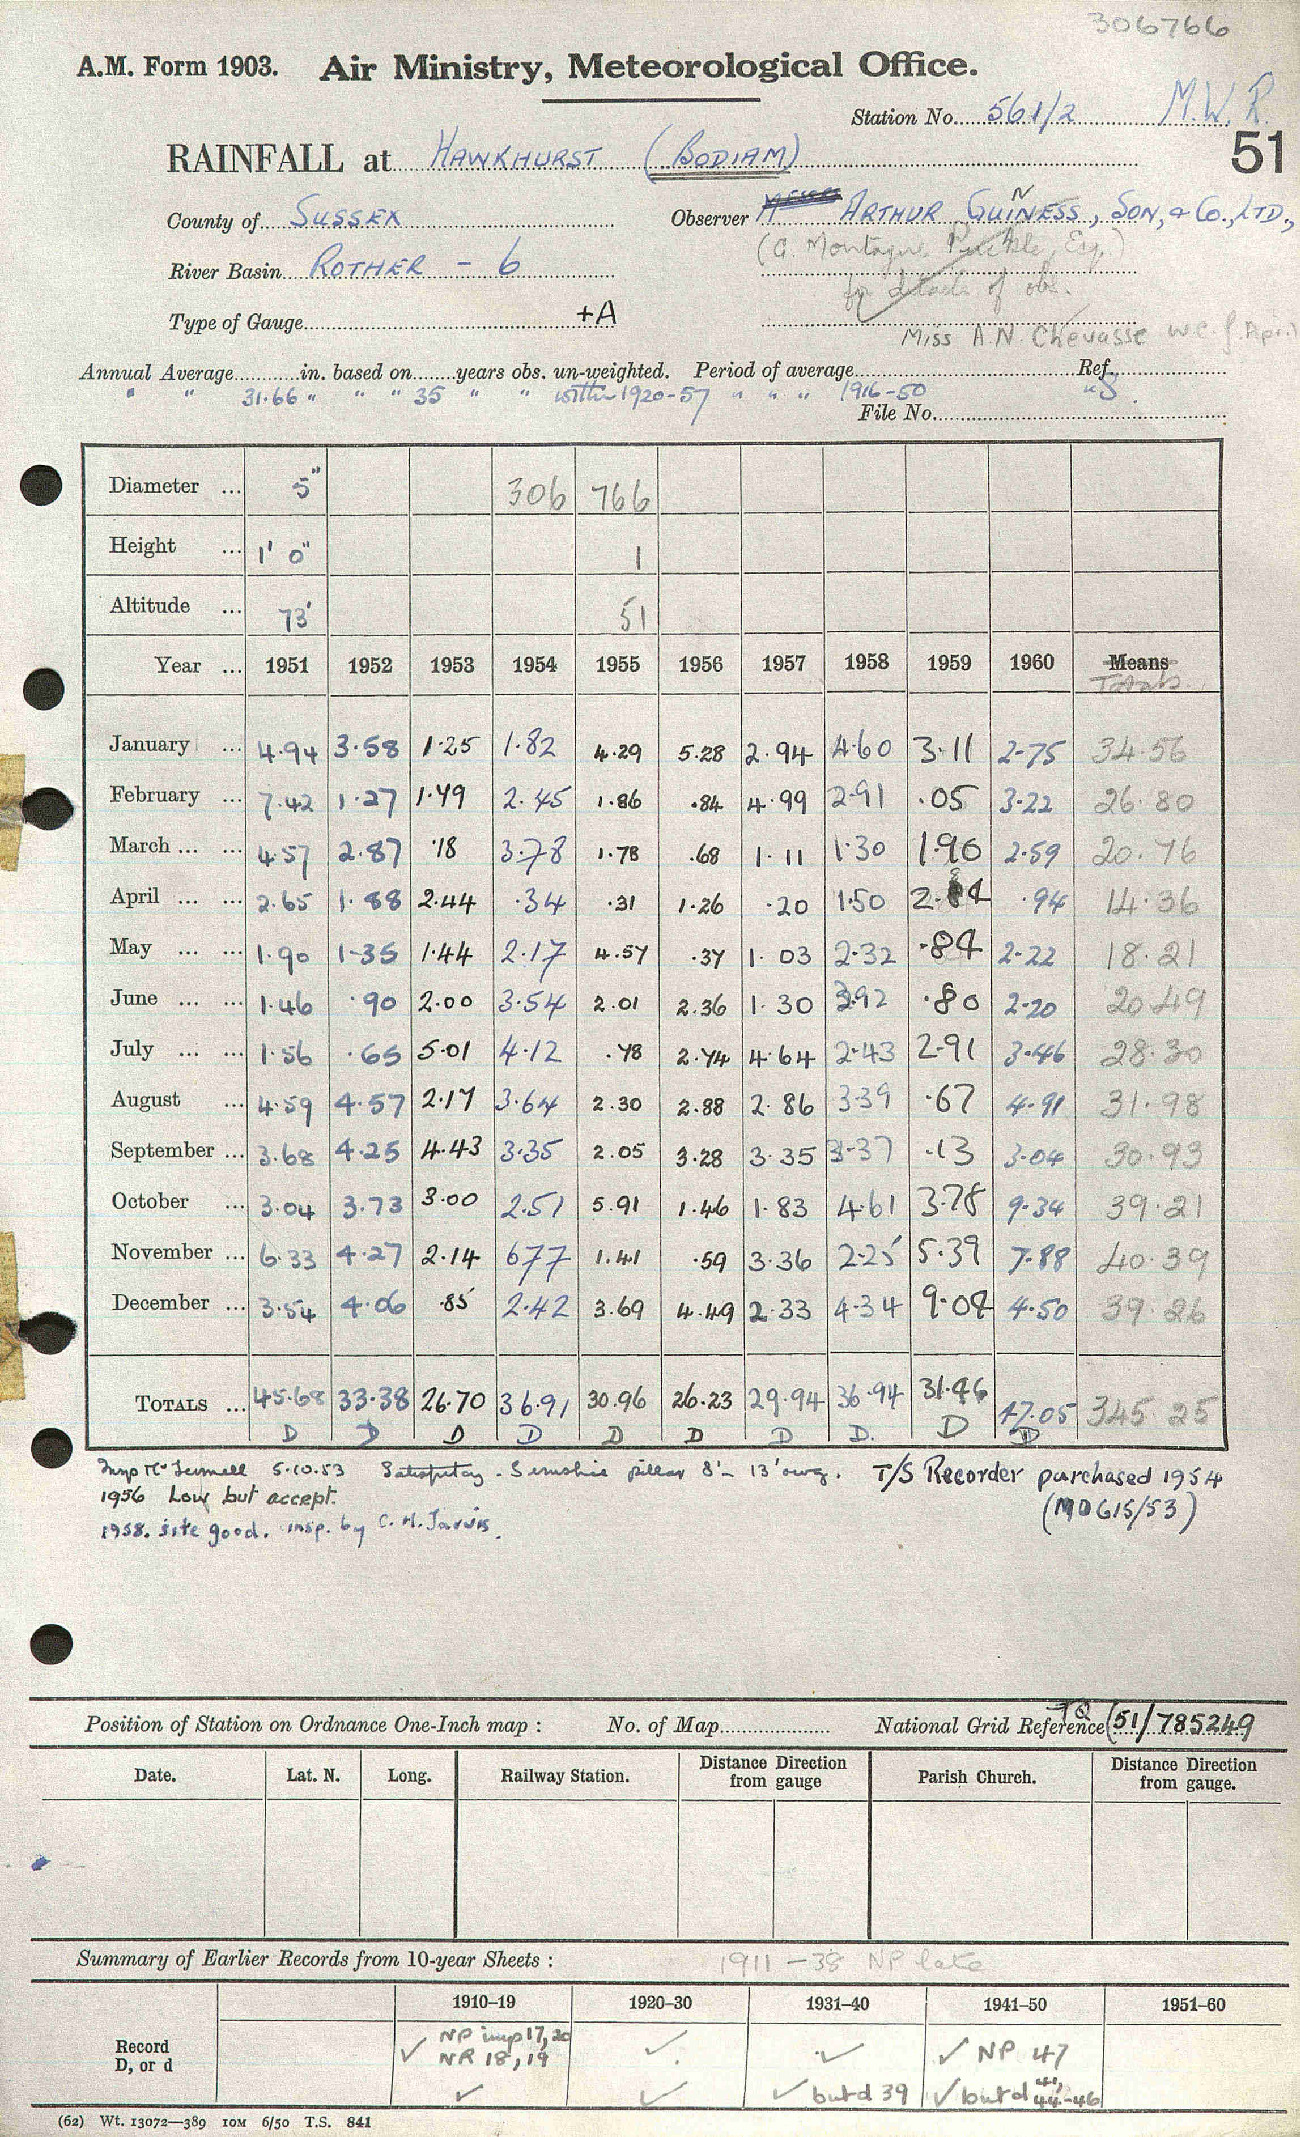 306766
A.M. Form 1903. Air Ministry, Meteorological Office.
Station No. 561/2 M.W.R.
RAINFALL at HAWKHURST (BODIAM) 51
County of SUSSEX Observer ARTHUR GUINESS, SON, & Co., LTD.,
N
River Basin ROTHER - 6 (G. Montague
for details of obs.
Type of Gauge +A
Miss A.N. Chevasse w.e.f. April
Annual Average in. based on years obs. un-weighted. Period of average Ref.
" " 31.66 " " " 35 " " within 1920-57 " " " 1916-50
File No.
Diameter ... 5" 306 766
Height ... 1' 0" 1
Altitude ... 73' 51
Year ... 1951 1952 1953 1954 1955 1956 1957 1958 1959 1960 Means
Totals
January ... 4.94 3.58 1.25 1.82 4.29 5.28 2.94 4.60 3.11 2.75 34.56
February ... 7.42 1.27 1.49 2.45 1.86 .84 4.99 2.91 .05 3.22 26.80
March ... ... 4.57 2.87 .18 3.78 1.78 .68 1.11 1.30 1.90 2.59 20.76
April ... ... 2.65 1.88 2.44 .34 .31 1.26 .20 1.50 2.84 .94 14.36
May ... ... 1.90 1.35 1.44 2.17 4.57 .37 1.03 2.32 .84 2.22 18.21
June ... ... 1.46 .90 2.00 3.54 2.01 2.36 1.30 3.92 .80 2.20 20.49
July ... ... 1.56 .65 5.01 4.12 .78 2.74 4.64 2.43 2.91 3.46 28.30
August ... 4.59 4.57 2.17 3.64 2.30 2.88 2.86 3.39 .67 4.91 31.98
September ... 3.68 4.25 4.43 3.35 2.05 3.28 3.35 3.37 .13 3.04 30.93
October ... 3.04 3.73 3.00 2.51 5.91 1.46 1.83 4.61 3.78 9.34 39.21
November ... 6.33 4.27 2.14 6.77 1.41 .59 3.36 2.25 5.39 7.88 40.39
December ... 3.54 4.06 .85 2.42 3.69 4.49 2.33 4.34 9.04 4.50 39.26
TOTALS ... 45.68 33.38 26.70 36.91 30.96 26.23 29.94 36.94 31.46 47.05 345.25
D D D D D D D D. D D
5.10.53 Satisfactory - Sunshine pillar 8'- 13' away. T/S Recorder purchased 1954
1956 Low but accept. (MO615/53)
1958. site good. insp. by C. H. Jarvis.
Position of Station on Ordnance One-Inch map : No. of Map National Grid Reference TQ (51/785249
Date. Lat. N. Long. Railway Station. Distance Direction from gauge Parish Church. Distance Direction from gauge.
Summary of Earlier Records from 10-year Sheets : 1911 - 38 NP late
1910–19 1920–30 1931–40 1941–50 1951–60
Record ✓ NP imp 17, 20 ✓. ✓ ✓ NP 47
D, or d NR 18, 19
✓ ✓ ✓ but d 39 ✓ but d 41, 44-46
(62) Wt. 13072—389 10M 6/50 T.S. 841